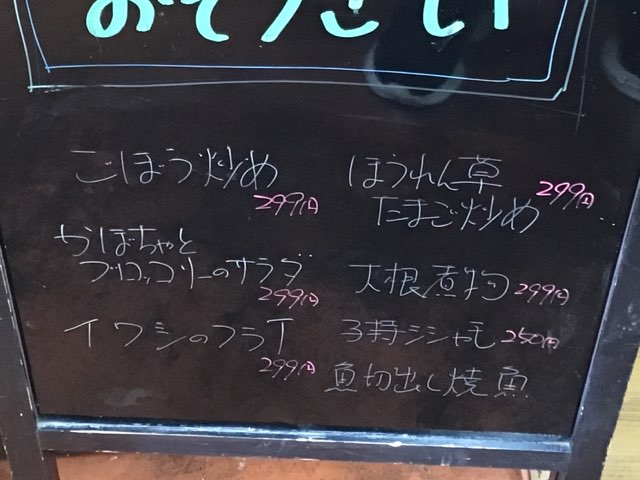 おそうざい
ごぼう炒め
299円
かぼちゃと
ブロッコリーのサラダ
299円
イワシのフライ
299円
ほうれん草
たまご炒め
299円
大根煮物 299円
子持シシャモ 250円
魚切出し焼魚